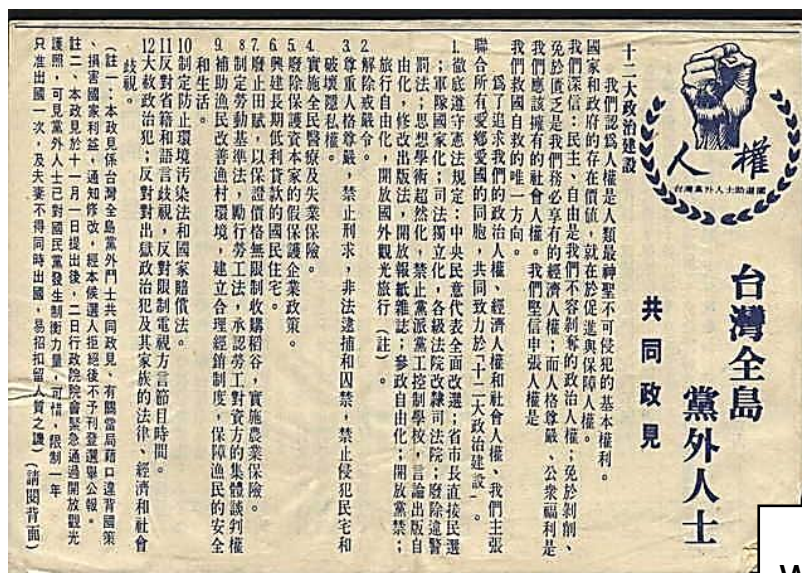 人權
台灣黨外人士助選團
台灣全島
黨外人士
共同政見
十二大政治建設
我們認爲人權是人類最神聖不可侵犯的基本權利。
國家和政府的存在價值,就在於促進與保障人權。
我們深信:民主、自由是我們不容剝奪的政治人權;免於剝削、
免於匱乏是我們務必享有的經濟人權;而人格尊嚴、公衆福利是
我們應該擁有的社會人權。我們堅信申張人權是
我們救國自救的唯一方向。
爲了追求我們的政治人權、經濟人權和社會人權、我們主張
聯合所有愛鄉愛國的同胞,共同致力於「十二大政治建設」。
1.徹底遵守憲法規定:中央民意代表全面改選;省市長直接民選
;軍隊國家化;司法獨立化,各級法院改隸司法院;廢除違警
罰法;思想學術超然化,禁止黨派黨工控制學校,言論出版自
由化,修改出版法,開放報紙雜誌;參政自由化;開放黨禁;
旅行自由化,開放國外觀光旅行(註)。
2.解除戒嚴令。
3.尊重人格尊嚴,禁止刑求,非法逮捕和囚禁,禁止侵犯民宅和
破壞隱私權。
4.實施全民醫療及失業保險。
5.廢除保護資本家的假保護企業政策。
6.興建長期低利貸款的國民住宅。
7.廢止田賦,以保證價格無限制收購稻谷,實施農業保險。
8.制定勞動基準法,勵行勞工法,承認勞工對資方的集體談判權
9.補助漁民改善漁村環境,建立合理經銷制度,保障漁民的安全
和生活。
10制定防止環境汚染法和國家賠償法。
11反對省籍和語言歧視,反對限制電視方言節目時間。
12大赦政治犯;反對對出獄政治犯及其家族的法律、經濟和社會
歧視。
(註一:本政見係台灣全島黨外鬥士共同政見、有關當局藉口違背國策
、損害國家利益,通知修改,經本候選人拒絕後不予刊登選舉公報。
註二、本政見於十一月一日提出後,二日行政院院會緊急通過開放觀光
護照,可見黨外人士已對國民黨發生制衡力量,可惜,限制一年
只准出國一次,及夫妻不得同時出國,易招扣留人質之譏)(請閱背面)